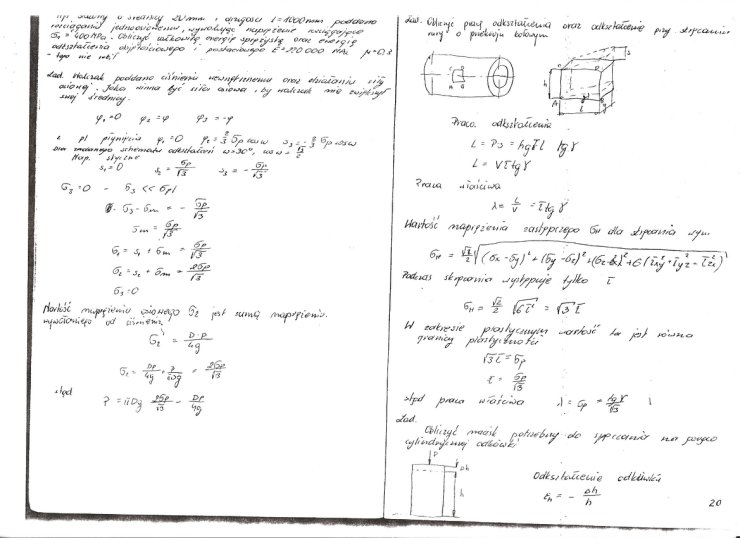 o średnicy 20 mm i długości l = 1000 mm poddano
rozciąganiu jednoosiowemu, wywołując naprężenie rozciągające
σ₁ = 400 MPa. Obliczyć całkowitą energię sprężystą oraz energię
odkształcenia objętościowego i postaciowego E = 220 000 MPa, μ = 0,3
Zad. Walczak poddano ciśnieniu wewnętrznemu oraz działaniu siły
osiowej. Jaka winna być siła osiowa, by walczak nie zwiększył
swej średnicy.
φ₁ = 0 φ₂ = φ φ₃ = -φ
z pł płynięcia φ₁ = 0 φ₂ = 2/3 σp cos ω s₃ = -2/3 σp cos ω
Dla zadanego schematu odkształceń ω = 30°, cos ω = √3/2
Nap. styczne
s₁ = 0 s₂ = σp/√3 s₃ = -σp/√3
σ₃ = 0 - σ₃ << σp!
σ₃ - σm = - σp/√3
σm = σp/√3
σ₁ = s₁ + σm = σp/√3
σ₂ = s₂ + σm = 2σp/√3
σ₃ = 0
Wartość naprężenia osiowego σ₂ jest sumą naprężenia
wywołanego od ciśnienia
σ₂' = D·p/4g
σ₂ = Dp/4g + P/πDg = 2σp/√3
stąd
P = πDg 2σp/√3 - Dp/4g
Zad. Obliczyć pracę odkształcenia oraz odkształcenie przy skręcaniu
rury o przekroju kołowym
h
A
l
s
Praca odkształcenia
L = Ps = hgτl tgγ
L = Vτtgγ
Praca właściwa
λ = L/V = τtgγ
Wartość naprężenia zastępczego σH dla skręcania wym.
σH = √2/2 √(σx - σy)² + (σy - σz)² + (σz - σx)² + 6(τ²xy + τ²yz - τ²zx)
Podczas skręcania występuje tylko τ
σH = √2/2 √6τ² = √3 τ
W zakresie plastycznym wartość ta jest równa
granicy plastyczności
√3 τ = σp
τ = σp/√3
stąd praca właściwa λ = σp = tgγ/√3
Zad.
Obliczyć nacisk potrzebny do spęczania na gorąco
cylindrycznej odkówki
P
Δh
h
Odkształcenie odkówki
εh = - Δh/h
20